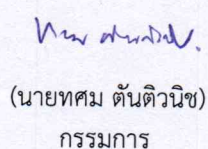 (นายทศม ตันติวนิช)
กรรมการ